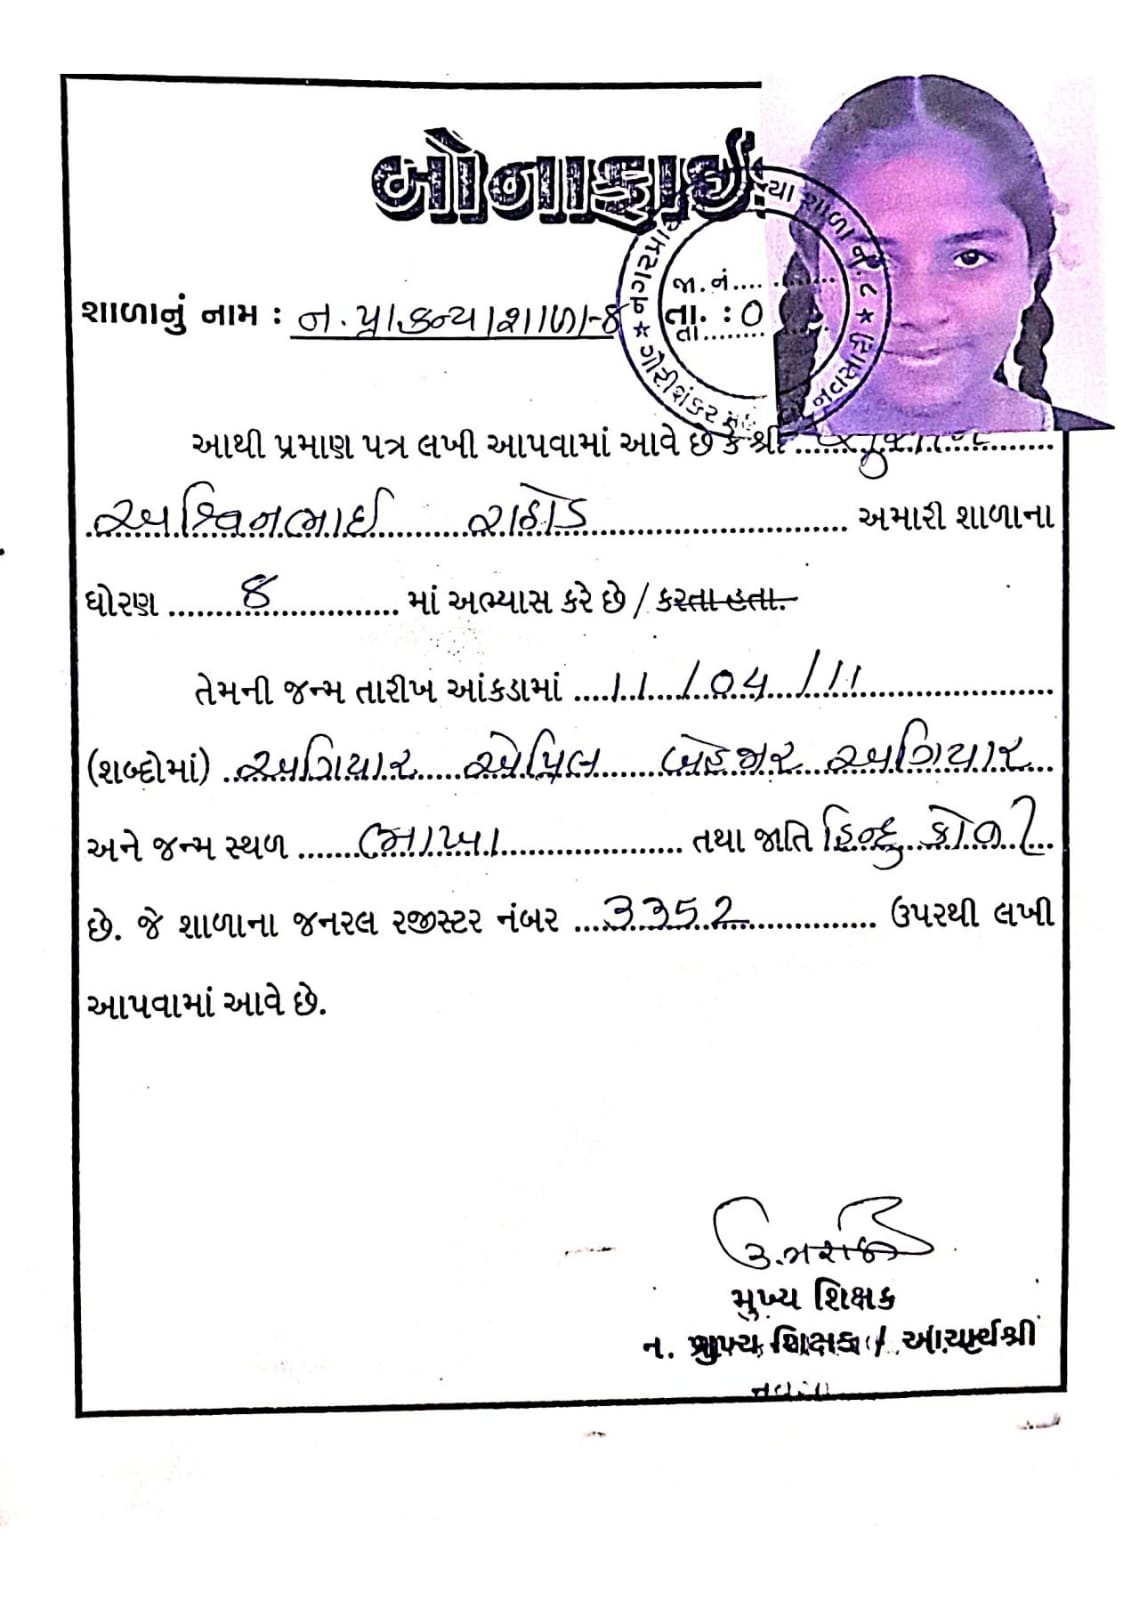 બોનાફાઈડ
શાળાનું નામ : ન. પ્રા. કન્યાશાળા-૪
જા. નં....
તા. : ૦
તા........
ગૌરીશંકર
નવસારી
આથી પ્રમાણ પત્ર લખી આપવામાં આવે છે કે શ્રી
અશ્વિનભાઈ રાઠોડ અમારી શાળાના
ધોરણ ૪ માં અભ્યાસ કરે છે / કરતા હતા.
તેમની જન્મ તારીખ આંકડામાં 11/04/11
(શબ્દોમાં) અગિયાર એપ્રિલ બેહજાર અગિયાર
અને જન્મ સ્થળ ભાખા તથા જાતિ હિન્દુ કોળી
છે. જે શાળાના જનરલ રજીસ્ટર નંબર 3352 ઉપરથી લખી
આપવામાં આવે છે.
મુખ્ય શિક્ષક
મુખ્ય શિક્ષક / આચાર્યશ્રી